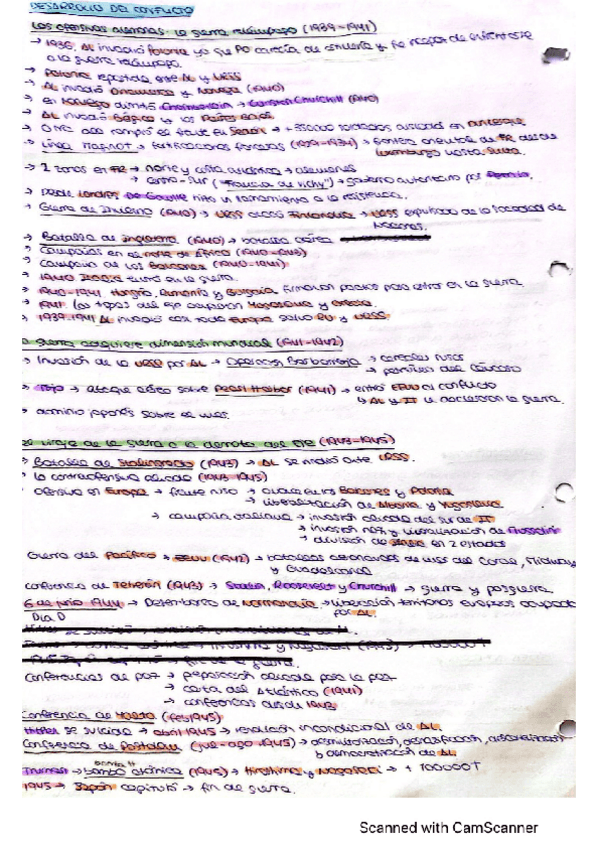 DESARROLLO DEL CONFLICTO
Las ofensivas alemanas: la guerra relámpago (1939-1941)
→ 1939, AL invadió Polonia ya que PO carecía de y fue de enfrentarse
a la guerra relámpago.
→ Polonia repartida entre AL y URSS
→ AL invadió Dinamarca y Noruega (1940)
→ en Noruega dimitió Chamberlain → Churchill (1940)
→ AL invadió Bélgica y los Países Bajos
→ Otro rompió el frente en Sedán → +350000 soldados en Dunkerque
→ Línea Maginot → fortificaciones francesas → frontera oriental de FR desde
Luxemburgo hasta Suiza.
→ 2 zonas en FR → norte y costa atlántica → alemanes
→ centro-sur ("Francia de Vichy") → gobierno autoritario por
→ Desde Londres De Gaulle hizo un llamamiento a la resistencia.
→ Guerra de Invierno (1940) → URSS atacó Finlandia → URSS expulsada de la Sociedad de
Naciones.
→ Batalla de Inglaterra (1940) → batalla aérea
→ Campañas en el norte de África (1940-1943)
→ Campaña de los Balcanes (1940-1941)
→ 1940 Italia entró en la guerra.
→ 1940-1941 Hungría, Rumanía y Bulgaria firmaron pactos para entrar en la guerra
→ 1941 las tropas del eje ocuparon Yugoslavia y Grecia.
→ 1939-1941 AL invadió casi toda Europa salvo RU y URSS.
La guerra adquiere dimensión mundial (1941-1942)
→ Invasión de la URSS por AL → Operación Barbarroja → cereales rusos
→ petróleo del Cáucaso
→ Japón → ataque aéreo sobre Pearl Harbor (1941) → entró EEUU al conflicto
↳ AL y IT le declararon la guerra.
→ dominio japonés sobre el
El viraje de la guerra a la derrota del EJE (1943-1945)
→ Batalla de Stalingrado (1943) → AL se rindió ante URSS.
→ la contraofensiva aliada (1943-1945)
→ ofensiva en Europa → frente → en los Balcanes y Polonia
→ liberalización de Albania y Yugoslavia
→ campaña italiana → invasión aliada del sur de IT
→ invasión nazi y liberalización de Mussolini
→ división de Italia en 2 estados
Guerra del Pacífico → EEUU (1942) → batallas del mar del Coral, Midway
y Guadalcanal
Conferencia de Teherán (1943) → Stalin, Roosevelt y Churchill → guerra y posguerra.
6 de junio 1944 → Desembarco de Normandía → liberación territorios europeos ocupados
Día D por AL.
Conferencias de paz → preparación aliada para la paz
→ carta del Atlántico (1941)
→ conferencias desde 1943
Conferencia de Yalta (feb 1945)
Hitler se suicida → abril 1945 → rendición incondicional de AL.
Conferencia de Potsdam (jul-ago 1945) → desmilitarización, desnazificación,
y democratización de AL
Truman → bomba atómica (1945) → Hiroshima y Nagasaki → + 100000 †
1945 → Japón capituló → fin de guerra.
Scanned with CamScanner